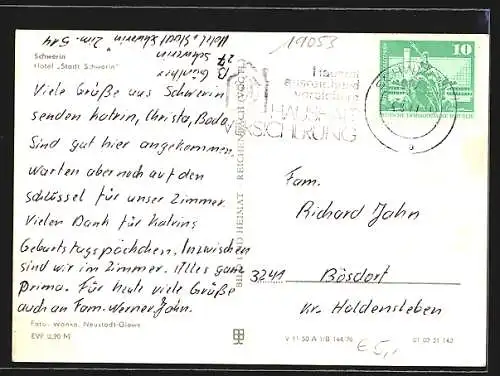 Schwerin
Hotel „Stadt Schwerin"
B. Günther
27 Schwerin
Hotel „Stadt Schwerin" Zim. 514
Viele Grüße aus Schwerin
senden Katrin, Christa, Bodo.
Sind gut hier angekommen.
Warten aber noch auf den
Schlüssel für unser Zimmer.
Vielen Dank für Katrins
Geburtstagspäckchen. Inzwischen
sind wir im Zimmer. Alles ganz
prima. Für heute viele Grüße
auch an Fam. Werner Jahn.
Foto: Wanke, Neustadt-Glewe
EVP 0,20 M
BILD UND HEIMAT REICHENBACH (VOGTL)
19053
HAUSHALT
VERSICHERUNG
SCHWERIN
10
Fam.
Richard Jahn
3241
Bösdorf
Kr. Haldensleben
V 11 50 A 1/B 164/76
01 02 21 142
€5,-